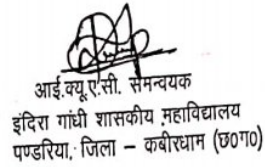 आई.क्यू.ए.सी. समन्वयक
इंदिरा गांधी शासकीय महाविद्यालय
पण्डरिया, जिला – कबीरधाम (छ०ग०)